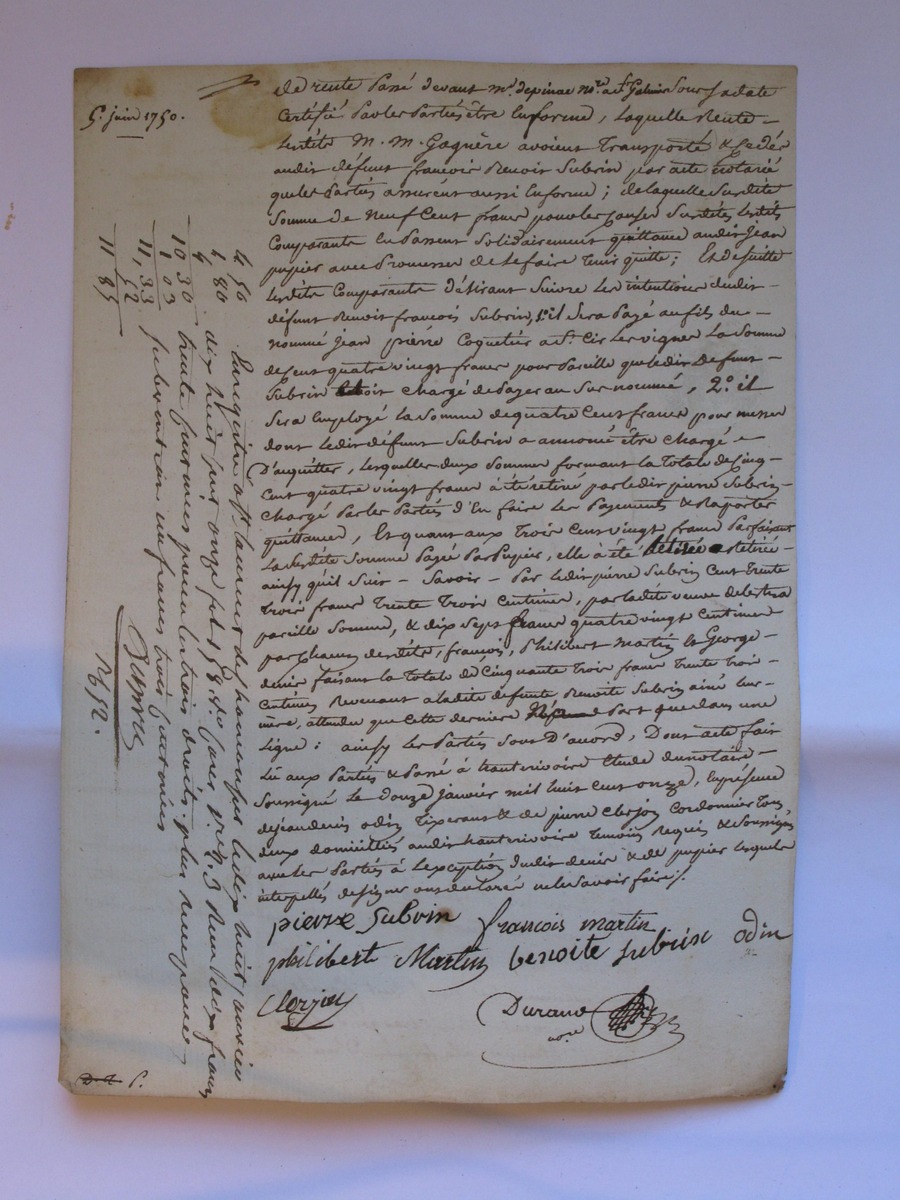 de rente Passé devant Me. depinac nre. a St. Galmier Sous Sa date
5. juin 1750.
Certifié Par les Parties être En forme, laquelle Rente
lesdits M. M. Gagnère avoient transporté & Cédée
audit défunt françois Benoit Subrin par acte notarié
que les Parties assurent aussi En forme ; de laquelle Susdite
Somme de Neuf Cent francs pour les Causes Susdites lesdits
Comparants En Passent Solidairement quittance audit Jean
pupier avec Promesses de le faire tenir quitte ; Et de Suitte
lesdits Comparants désirant Suivre les intentions dudit
défunt Benoit françois Subrin, 1° il Sera Payé au fils du
nommé Jean pierre Coquetier a St. Cir les vignes la Somme
de Cent quatre vingt francs pour Pareille que ledit Défunt
Subrin Etoit Chargé de Payer au Sus nommé, 2.° il
Sera Employé la Somme de quatre Cent francs pour messes
dont ledit défunt Subrin a annoncé être Chargé
D'acquitter, lesquelles deux Sommes formant la Totale de Cinq
Cent quatre vingt francs a été retiré par ledit pierre Subrin
Chargé Par les Parties d'En faire les Payements & Raporter
quittances, Et quant aux Trois Cent vingt francs Parfaisant
La Susdite Somme Payée Par Pupier, elle a été retirée
ainsy qu'il Suit - Savoir - Par ledit pierre Subrin Cent Trente
Trois francs Trente Trois Centimes, par ladite veuve
pareille Somme, & dix Sept francs quatre vingt Centimes
par Chacun desdits, françois, Philibert Martin Et George
denis faisant la Totale de Cinquante Trois francs Trente Trois
Centimes Revenant a ladite défunte Benoite Subrin ainé leur
mère, attendu que Cette derniere Part que dans une
Ligne : ainsy les Parties Sont D'accord, Dont acte fait
Lû aux Parties & Passé à hauterivoire Etude du notaire
Soussigné le Douze Janvier mil huit Cent onze, En présence
de Jean denis odin Tixerant & de pierre Clerjon Cordonnier Tous
deux domiciliés audit hauterivoire Temoins Requis & Soussignés
avec les Parties à l'exception dudit denis & de pupier lesquels
interpellés de signer ont declaré ne le Savoir faire ./.
pierre Subrin françois martin
philibert Martin benoite Subrin odin
Clerjon
Durand
nore
Enregistré a St. Laurent de chamousset le dix huit janvier
dix huit cent onze fol. 58 Reçu
trente centimes
Subvention un franc trois centimes
4 50
4 80
10 30
1 03
11,33
52
11 85
Durand
P. 6 52.